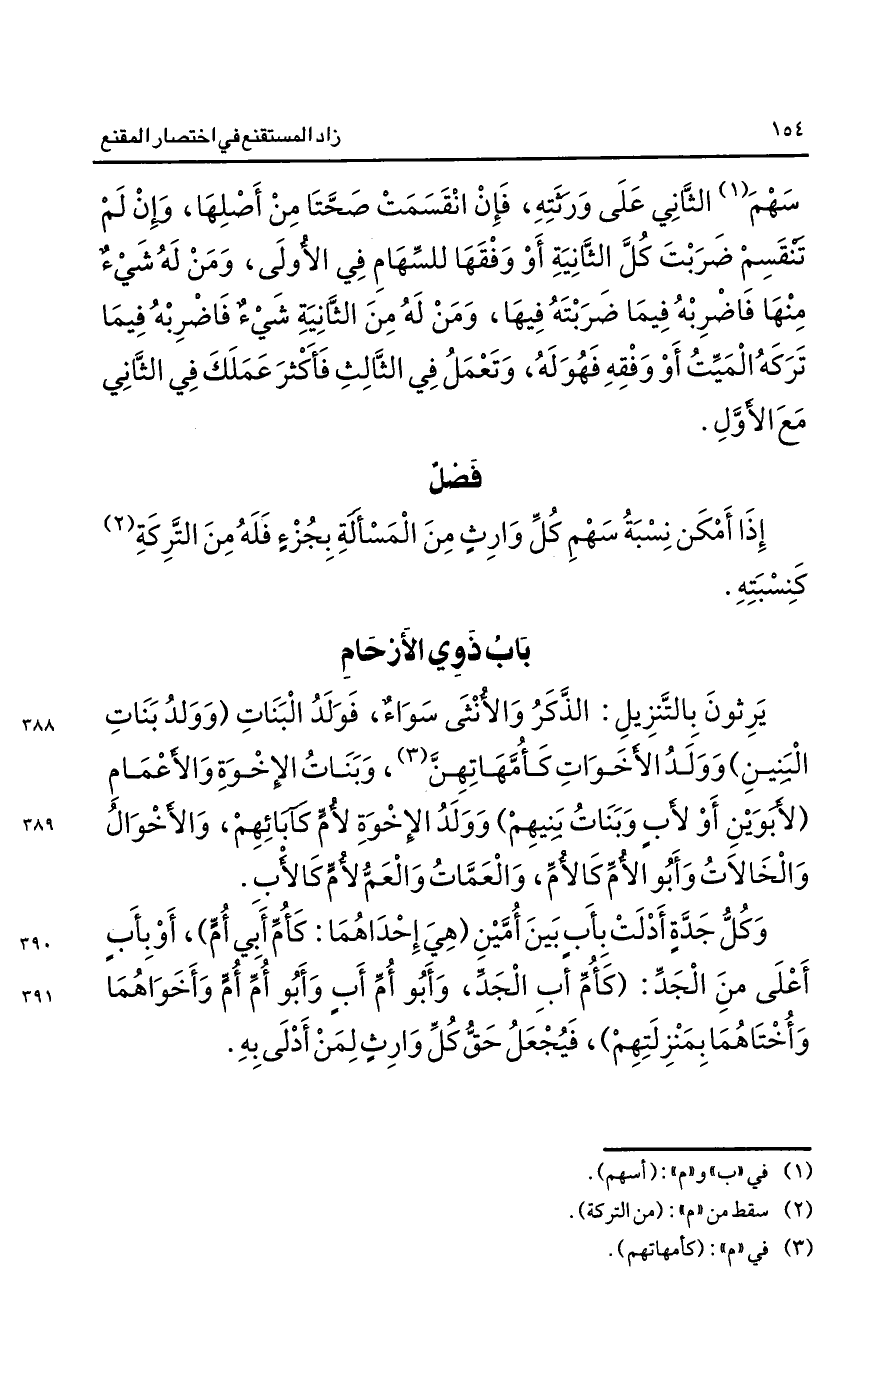 ١٥٤
زاد المستقنع في اختصار المقنع
سَهْمَ(١) الثَّانِي عَلَى وَرَثَتِهِ، فَإِنْ انْقَسَمَتْ صَحَّتَا مِنْ أَصْلِهَا، وَإِنْ لَمْ
تَنْقَسِمْ ضَرَبْتَ كُلَّ الثَّانِيَةِ أَوْ وَفْقَهَا للسِّهَامِ فِي الأُولَى، وَمَنْ لَهُ شَيْءٌ
مِنْهَا فَاضْرِبْهُ فِيمَا ضَرَبْتَهُ فِيهَا، وَمَنْ لَهُ مِنَ الثَّانِيَةِ شَيْءٌ فَاضْرِبْهُ فِيمَا
تَرَكَهُ الْمَيِّتُ أَوْ وَفْقِهِ فَهُوَ لَهُ، وَتَعْمَلُ فِي الثَّالِثِ فَأَكْثَرَ عَمَلَكَ فِي الثَّانِي
مَعَ الأَوَّلِ.
فَصْلٌ
إِذَا أَمْكَن نِسْبَةُ سَهْمِ كُلِّ وَارِثٍ مِنَ الْمَسْأَلَةِ بِجُزْءٍ فَلَهُ مِنَ التَّرِكَةِ(٢)
كَنِسْبَتِهِ.
بَابُ ذَوِي الأَرْحَامِ
يَرِثونَ بِالتَّنْزِيلِ: الذَّكَرُ وَالأُنْثَى سَوَاءٌ، فَوَلَدُ الْبَنَاتِ (وَوَلدُ بَنَاتِ ٣٨٨
الْبَنِينِ) وَوَلَدُ الأَخَوَاتِ كَأُمَّهَاتِهِنَّ(٣)، وَبَنَـاتُ الإِخْوَةِ وَالأَعْمَامِ
(لأَبَوَيْنِ أَوْ لأَبٍ وَبَنَاتُ بَنِيهِمْ) وَوَلَدُ الإِخْوَةِ لأُمٍّ كَآبَائِهِمْ، وَالأَخْوَالُ ٣٨٩
وَالْخَالَاتُ وَأَبُو الأُمِّ كَالأُمِّ، وَالْعَمَّاتُ وَالْعَمُّ لأُمٍّ كَالأَبِ.
وَكُلُّ جَدَّةٍ أَدْلَتْ بِأَبٍ بَينَ أُمَّيْنِ (هِيَ إِحْدَاهُمَا: كَأُمِّ أَبِي أُمٍّ)، أَوْ بِأَبٍ ٣٩٠
أَعْلَى منَ الْجَدِّ: (كَأُمِّ أَبِ الْجَدِّ، وَأَبُو أُمِّ أَبٍ وَأَبُو أُمِّ أُمٍّ وَأَخَوَاهُمَا ٣٩١
وَأُخْتَاهُمَا بِمَنْزِلَتِهِمْ)، فَيُجْعَلُ حَقُّ كُلِّ وَارِثٍ لِمَنْ أَدْلَى بِهِ.
(١) في «ب» و«م»: (أسهم).
(٢) سقط من «م»: (من التركة).
(٣) في «م»: (كأمهاتهم).